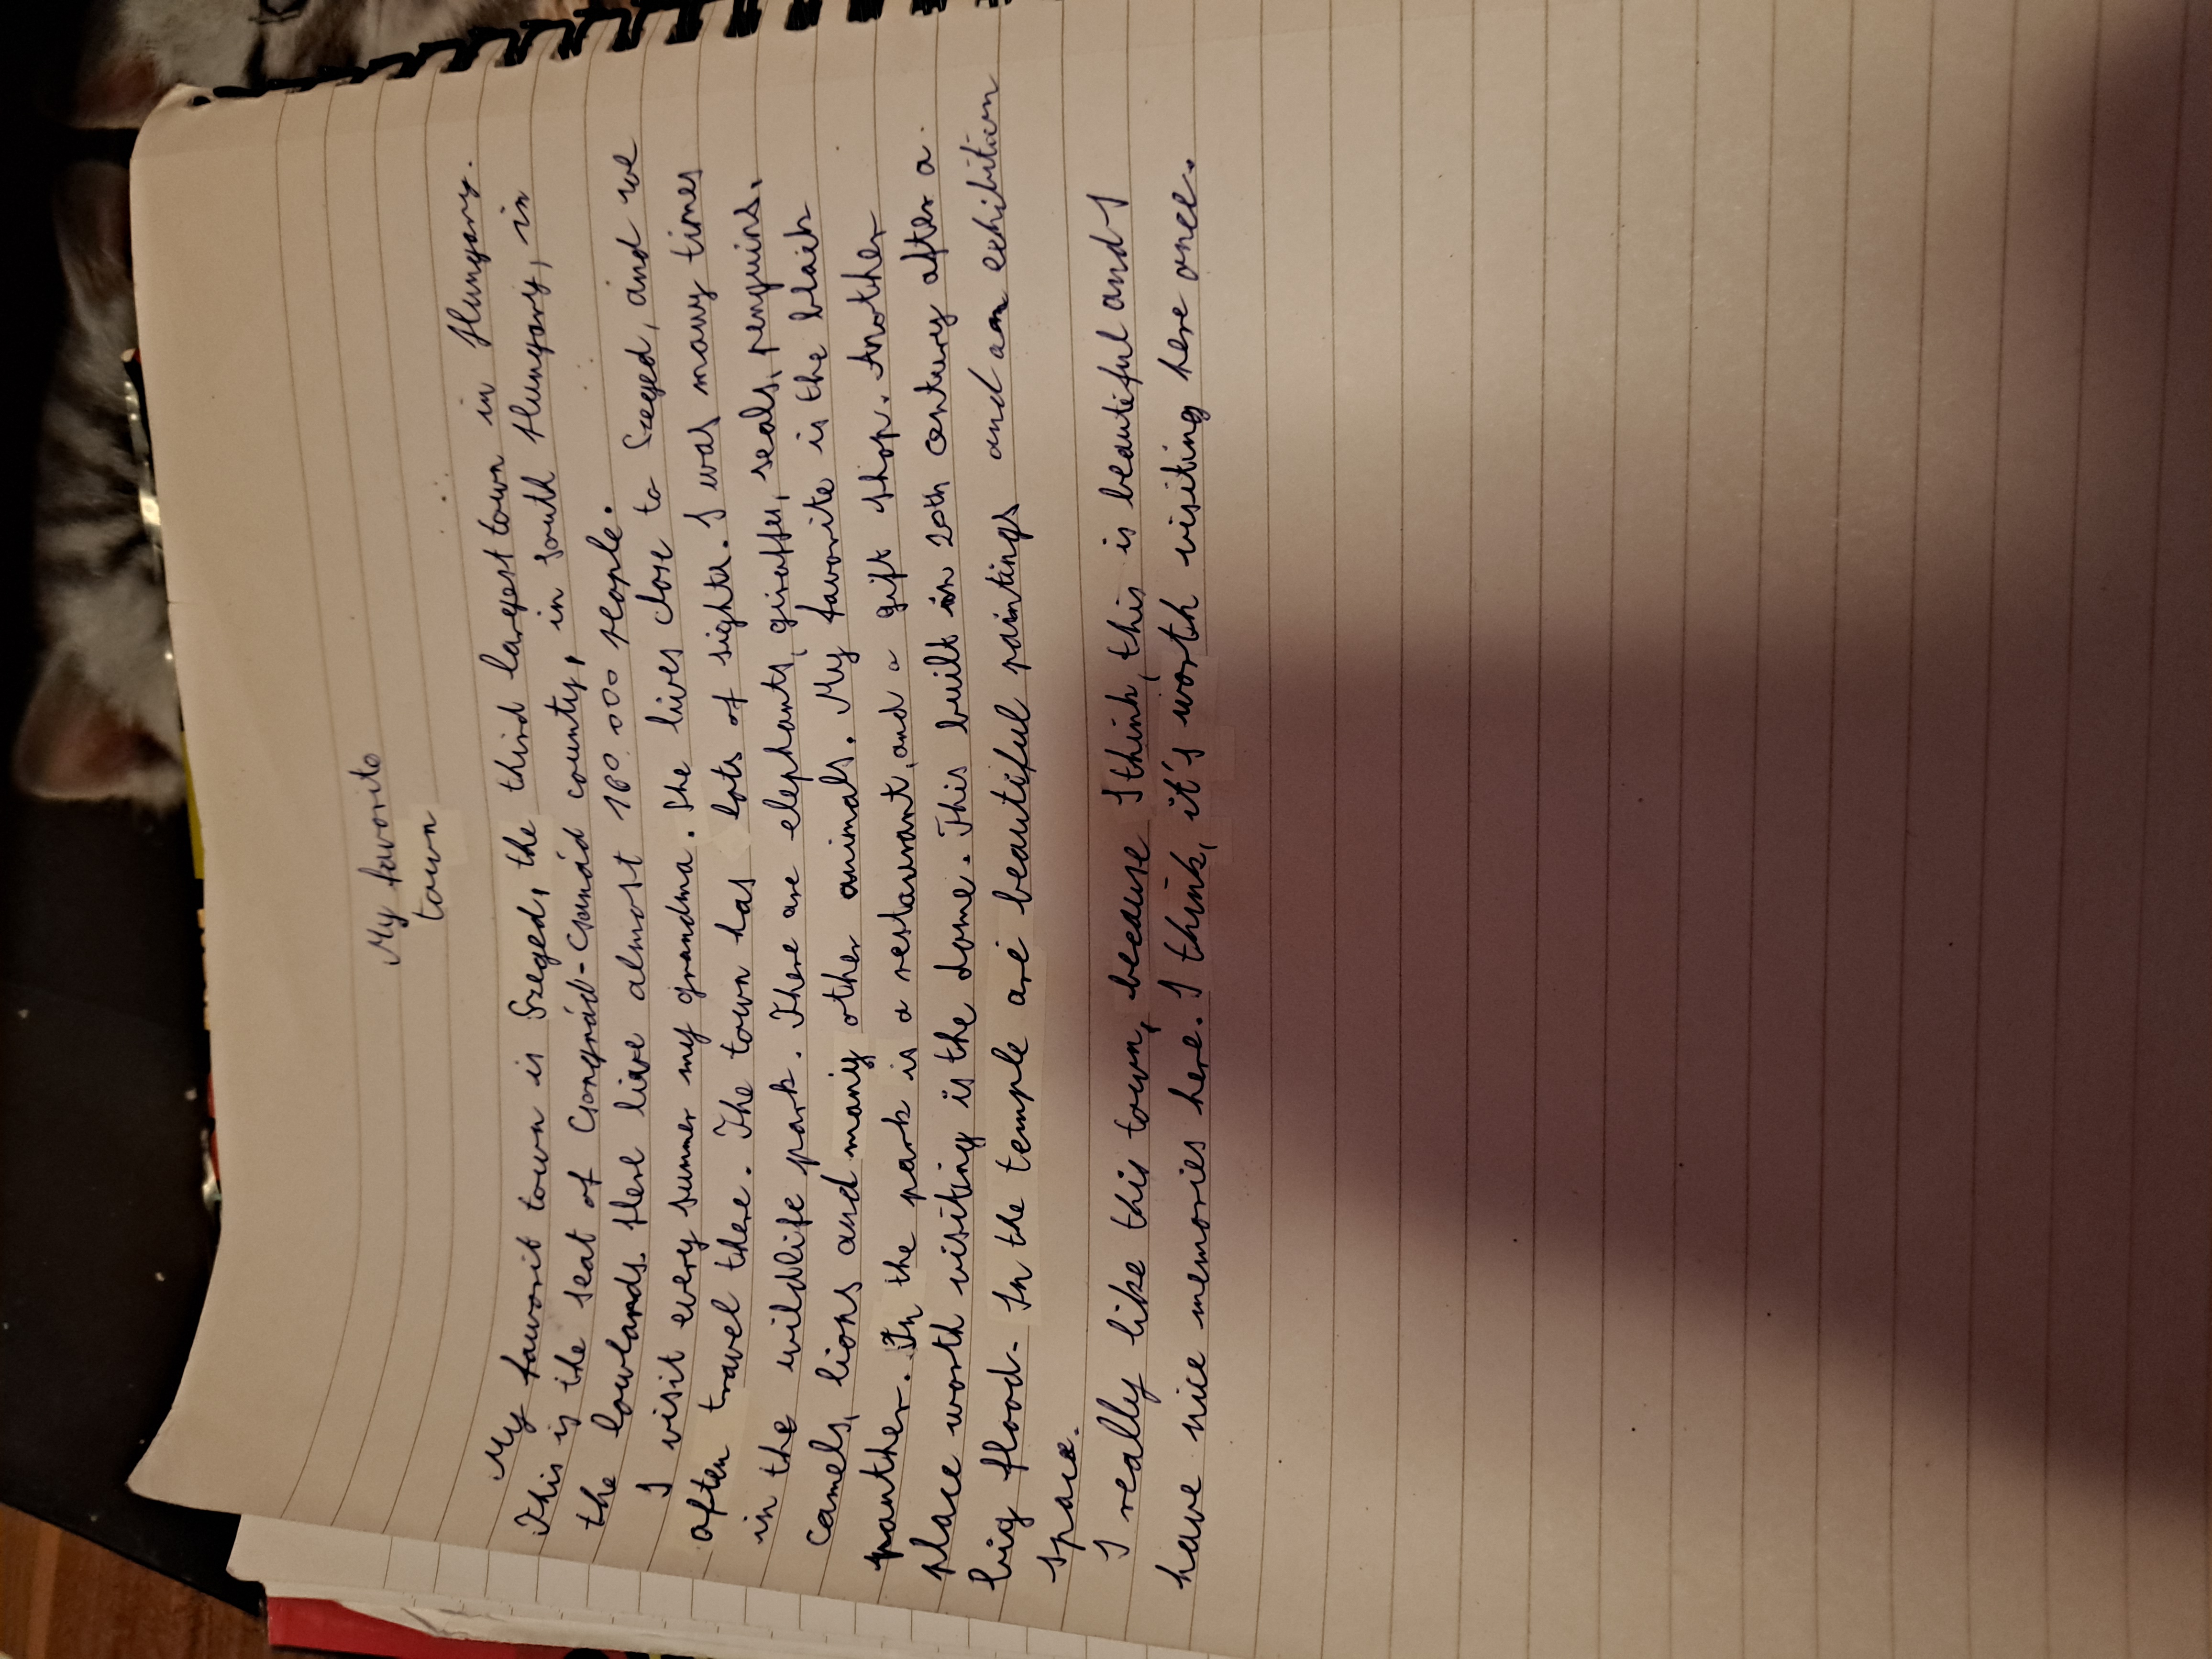 My favorite
town
My favorit town is Szeged, the third largest town in Hungary.
This is the seat of Csongrád-Csanád county, in south Hungary, in
the lowlands. Here live almost 160.000 people.
I visit every summer my grandma. She lives close to Szeged, and we
often travel there. The town has lots of sights. I was many times
in the wildlife park. There are elephants, giraffes, seals, penguins,
camels, lions and many other animals. My favorite is the black
panther. In the park is a restaurant, and a gift shop. Another
place worth visiting is the Dome. This built in 20th century after a
big flood. In the temple are beautiful paintings and an exhibition
space.
I really like this town, because I think, this is beautiful and I
have nice memories here. I think, it's worth visiting here once.